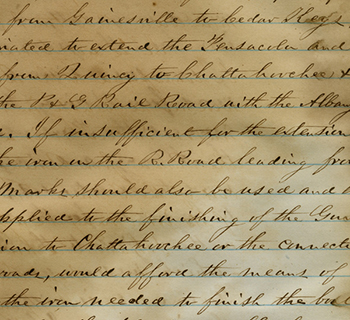 from Gainesville to Cedar Keys,
inated to extend the Pensacola and
from Quincy to Chattahoochee &
the P & G Rail Road with the Albany
If insufficient for the extension
he iron on the R. Road leading from
Marks should also be used and
applied to the finishing of the
ion to Chattahoochee or the connecti
roads, would afford the means of
the iron needed to finish the